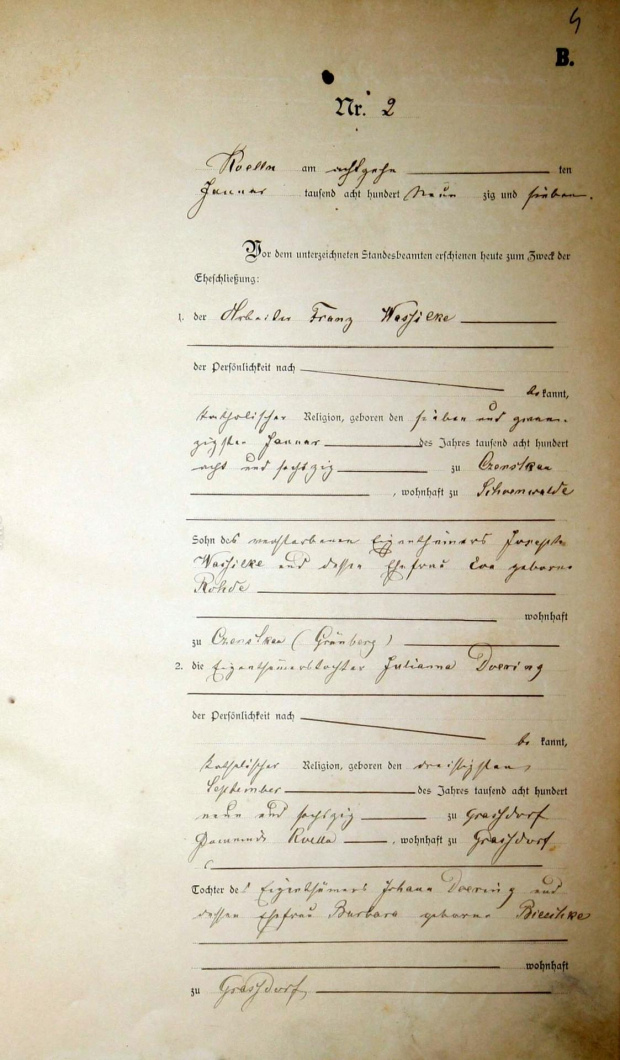 B.
Nr. 2
Koelln am achtzehnten
Januar tausend acht hundert Neunzig und sieben.
Vor dem unterzeichneten Standesbeamten erschienen heute zum Zweck der
Eheschließung:
1. der Arbeiter Franz
der Persönlichkeit nach
bekannt,
katholischer Religion, geboren den sieben und zwan-
zigsten Januar des Jahres tausend acht hundert
acht und sechszig zu Czenstkau
, wohnhaft zu Schoenwalde
Sohn des verstorbenen Eigenthümers Joseph
und dessen Ehefrau Eva geborne
Rohde
wohnhaft
zu Czenstkau (Grünberg)
2. die Eigenthümerstochter Julianna Doering
der Persönlichkeit nach
bekannt,
katholischer Religion, geboren den dreissigsten
September des Jahres tausend acht hundert
neun und sechszig zu
Gemeinde Koelln, wohnhaft zu
Tochter des Eigenthümers Johann Doering und
dessen Ehefrau Barbara geborne
wohnhaft
zu